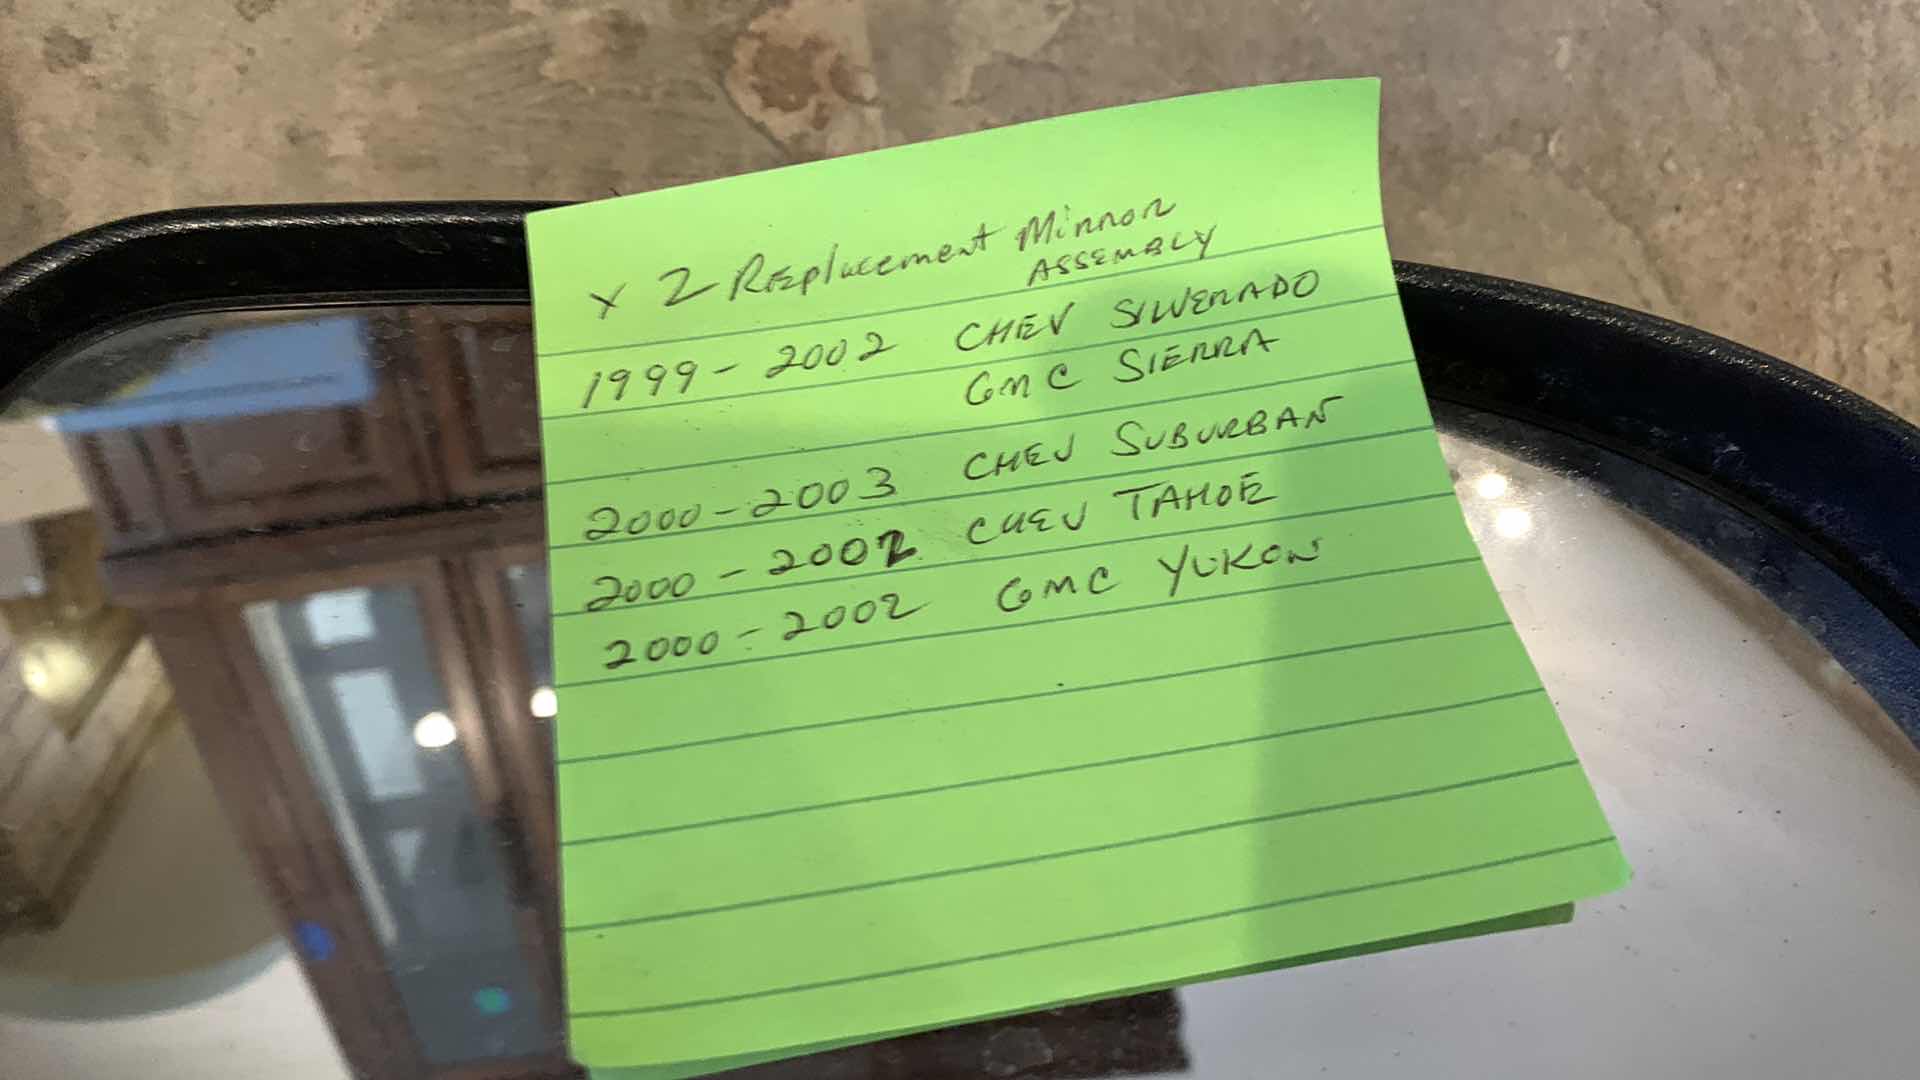 x 2 Replacement Mirror
ASSEMBLY
1999 - 2002 CHEV SILVERADO
GMC SIERRA
2000 - 2003 CHEV SUBURBAN
2000 - 2002 CHEV TAHOE
2000 - 2002 GMC YUKON